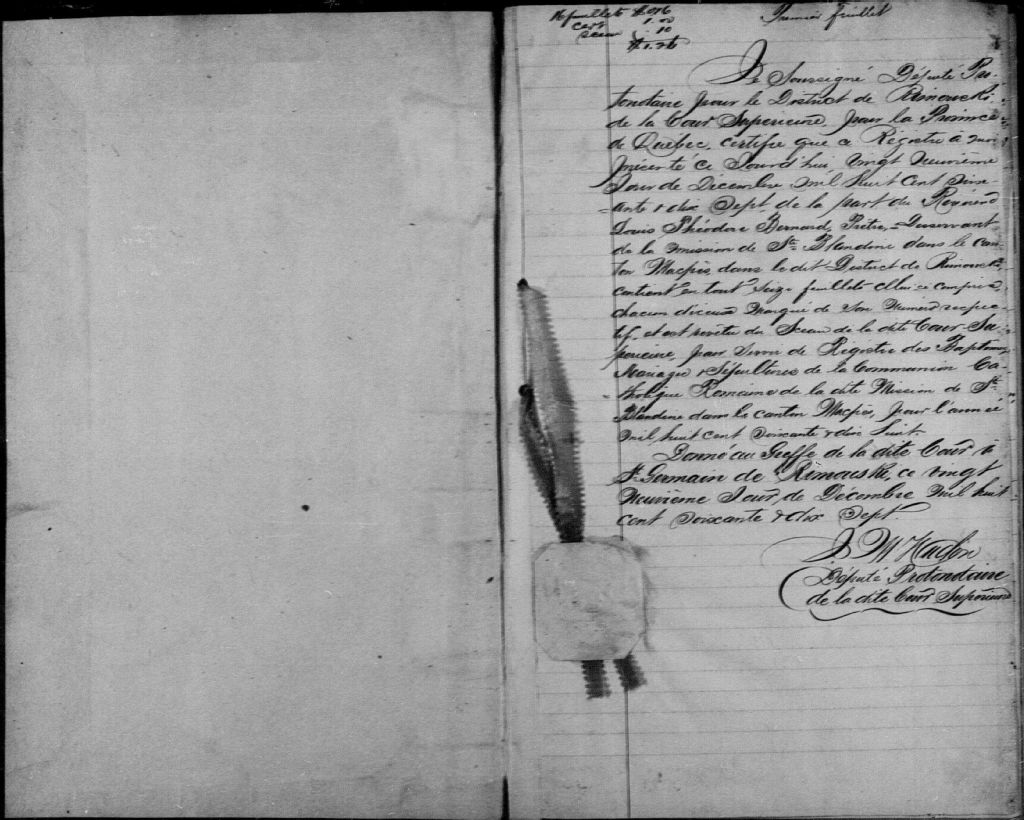 16 feuillets $0.16
cert 1.00
sceau .10
$1.26
Premier feuillet
Je Soussigné Député Pro-
tonotaire pour le District de Rimouski
de la Cour Superieure, pour la Province
de Québec, certifie que ce Régistre à moi
présenté ce Jourd'hui, vingt neuvième
Jour de Décembre mil huit cent soix-
ante & dix Sept, de la part du Révérend
Louis Théodore Bernard, Prêtre, Desservant
de la mission de Ste Blandine dans le can-
ton Macpès dans le dit District de Rimouski,
contient en tout Seize feuillets celui ci compris,
chacun d'iceux Marqué de son Numéro respec-
tif, et est revêtu du Sceau de la dite Cour Su-
périeure, pour servir de Régistre des Baptêmes
Mariages & Sépultures de la Communion Ca-
tholique Romaine de la dite Mission de Ste
Blandine dans le canton Macpès, pour l'année
mil huit cent soixante & dix huit.
Donné au Greffe de la dite Cour à
St Germain de Rimouski, ce vingt
Neuvième Jour de Décembre Mil huit
cent soixante & dix Sept.
Député Protonotaire
de la dite Cour Supérieure